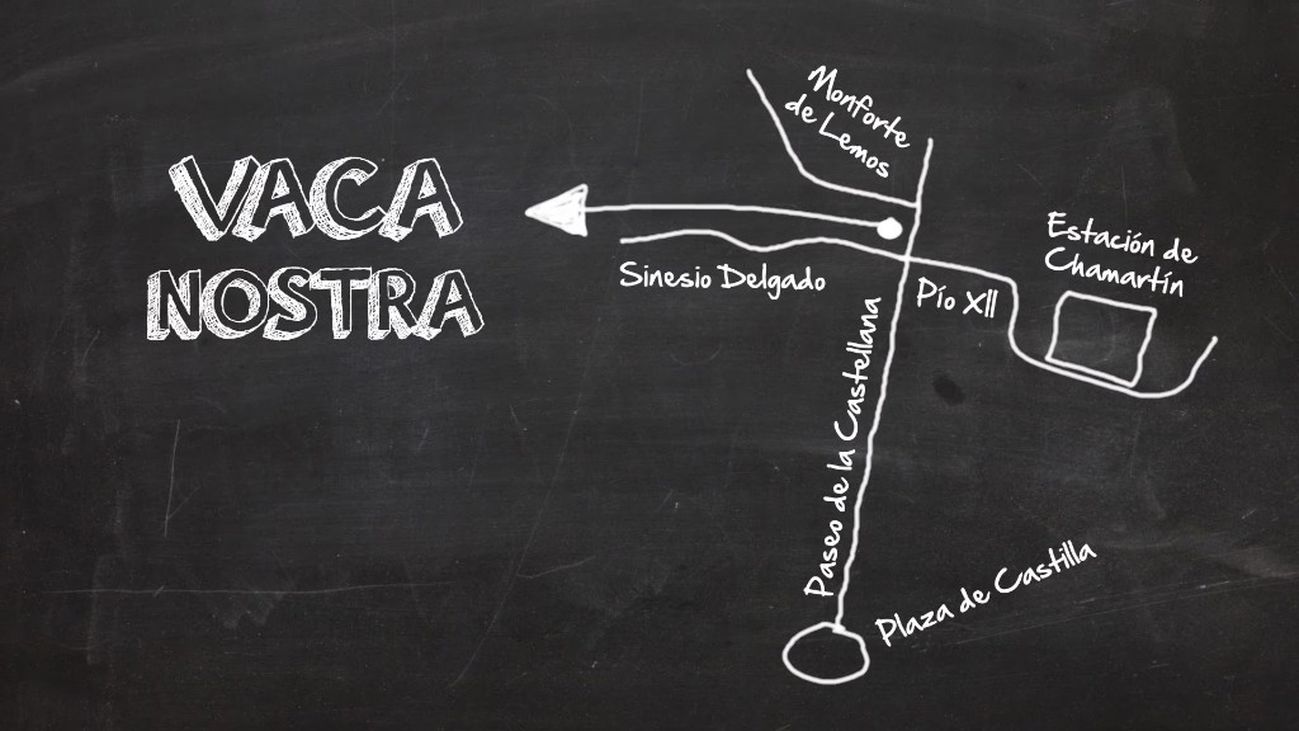 VACA
NOSTRA
Monforte
de Lemos
Estación de
Chamartín
Sinesio Delgado
Pío XII
Paseo de la Castellana
Plaza de Castilla